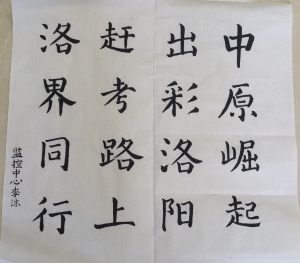 中原崛起
出彩洛阳
赶考路上
洛界同行
监控中心李沫